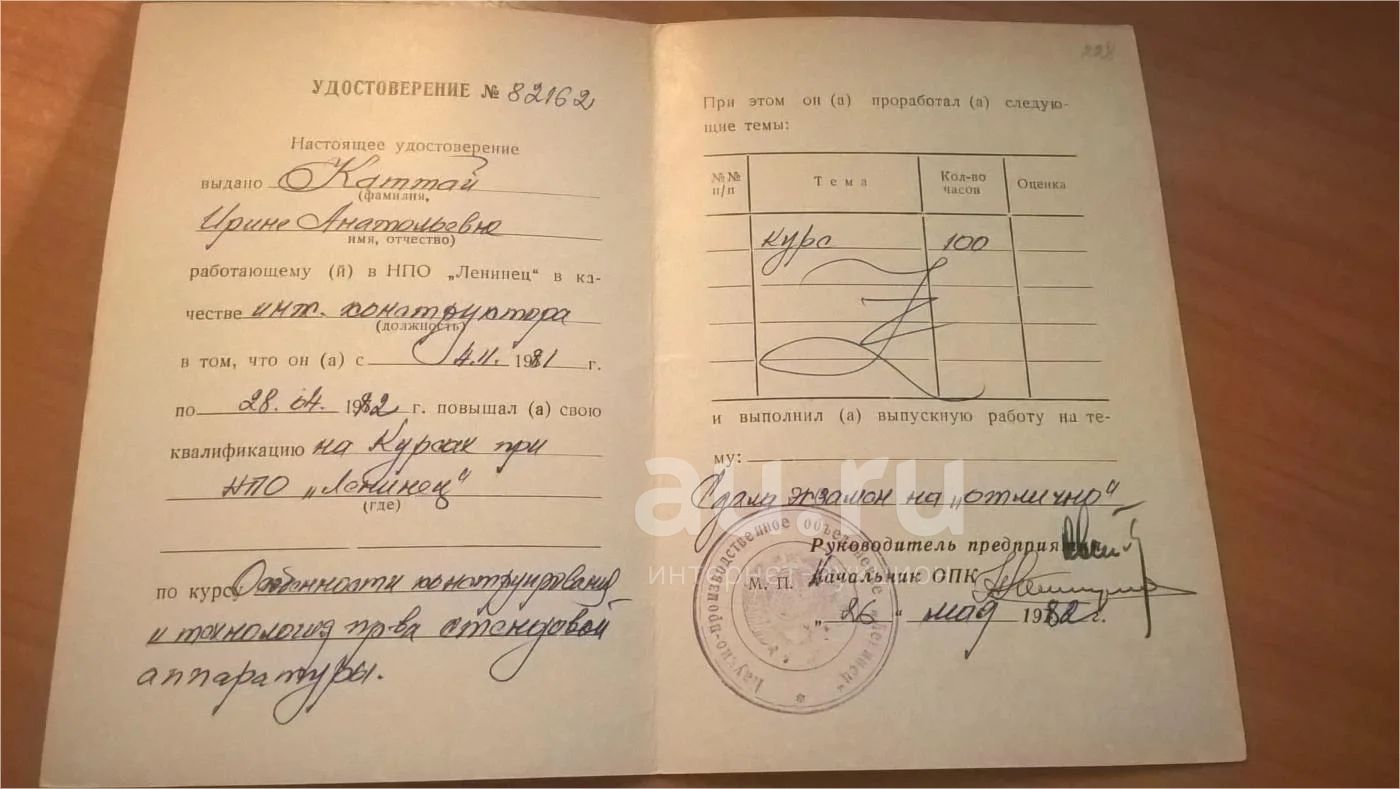 УДОСТОВЕРЕНИЕ № 82162
Настоящее удостоверение
выдано Каттай
(фамилия,
Ирине Анатольевне
имя, отчество)
работающему (й) в НПО „Ленинец“ в ка-
честве инж. конструктора
(должность)
в том, что он (а) с 4.11. 1981 г.
по 28.04. 1982 г. повышал (а) свою
квалификацию на Курсах при
НПО „Ленинец“
(где)
по курсу Особенности конструирования
и технология пр-ва стендовой
аппаратуры.
228
При этом он (а) проработал (а) следую-
щие темы:
№№ п/п Тема Кол-во часов Оценка
курс 100
и выполнил (а) выпускную работу на те-
му:
Сдала экзамен на „отлично“
Руководитель предприятия
М. П. Начальник ОПК
„26“ мая 1982 г.
Научно-производственное объединение „Ленинец“
au.ru
интернет-аукцион